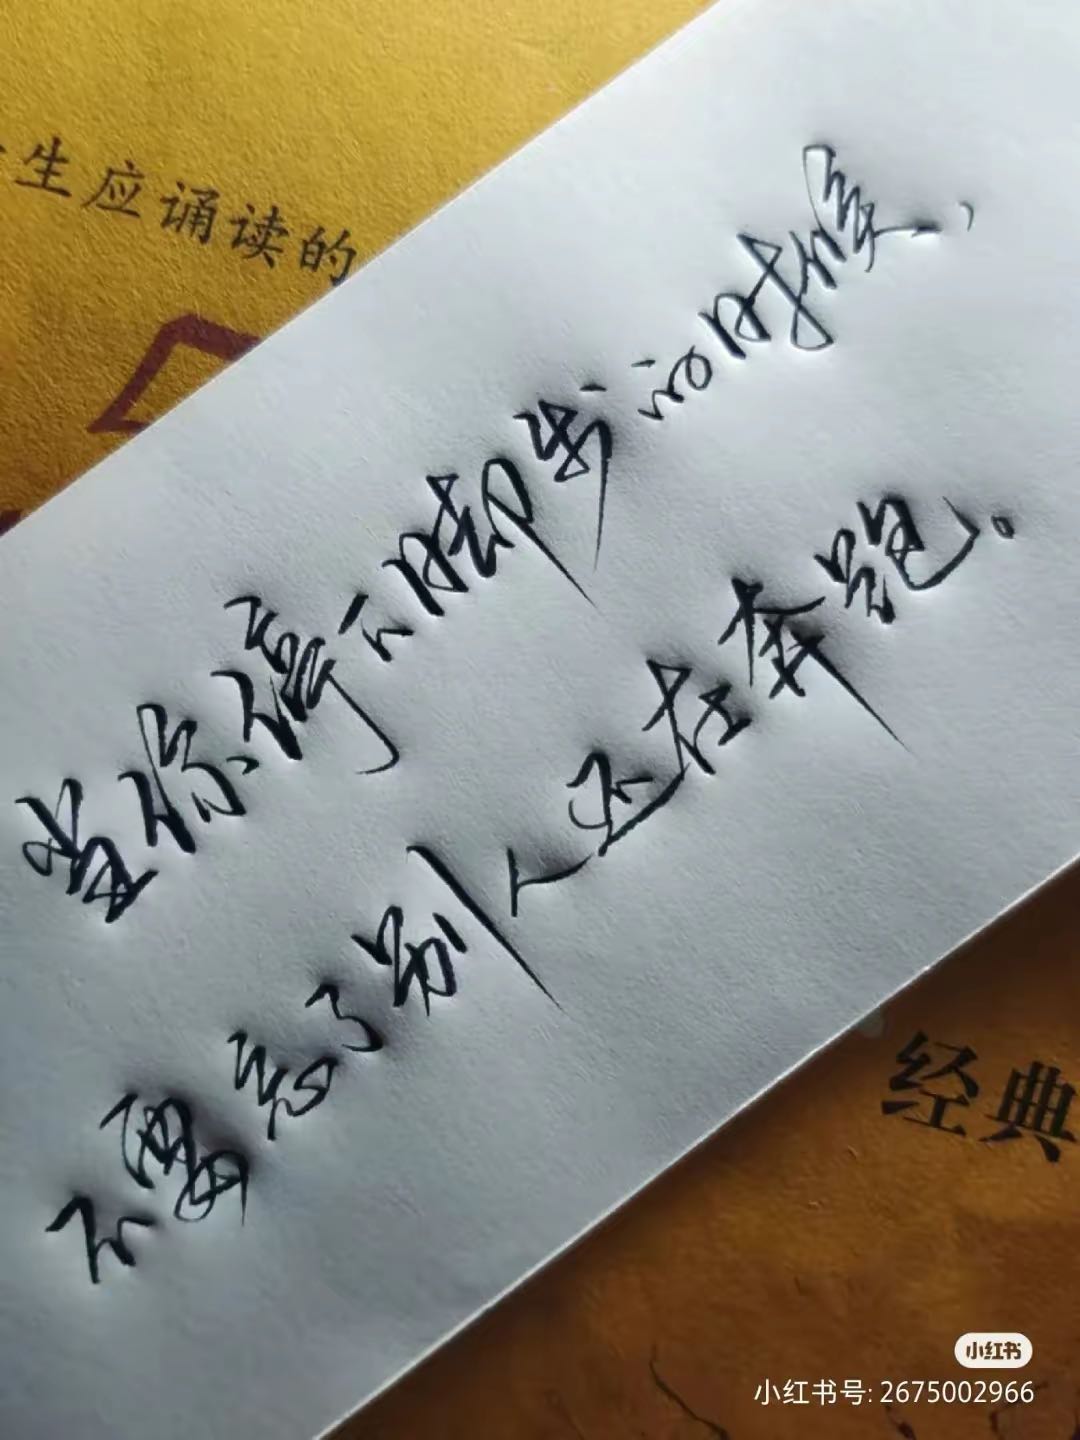 生应诵读的
当你停下脚步的时候、,
不要忘了别人还在奔跑。
经典
小红书
小红书号: 2675002966